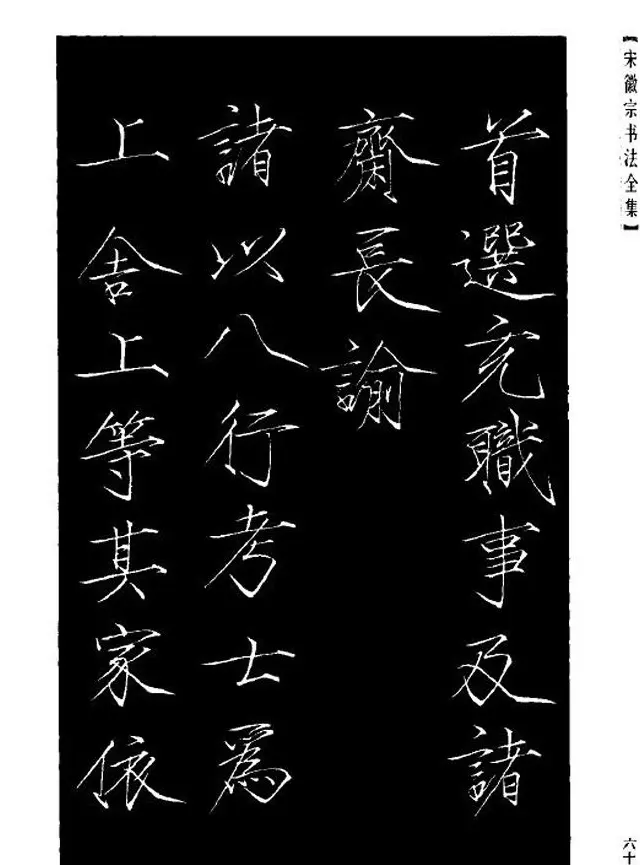 【宋徽宗书法全集】
首選充職事及諸
齋長諭
諸以八行考士為
上舍上等其家依
六十